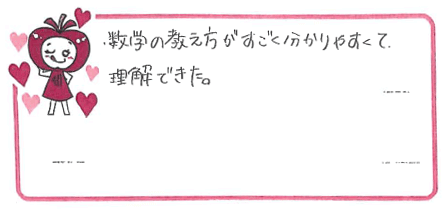 ・数学の教え方がすごく分かりやすくて、
理解できた。